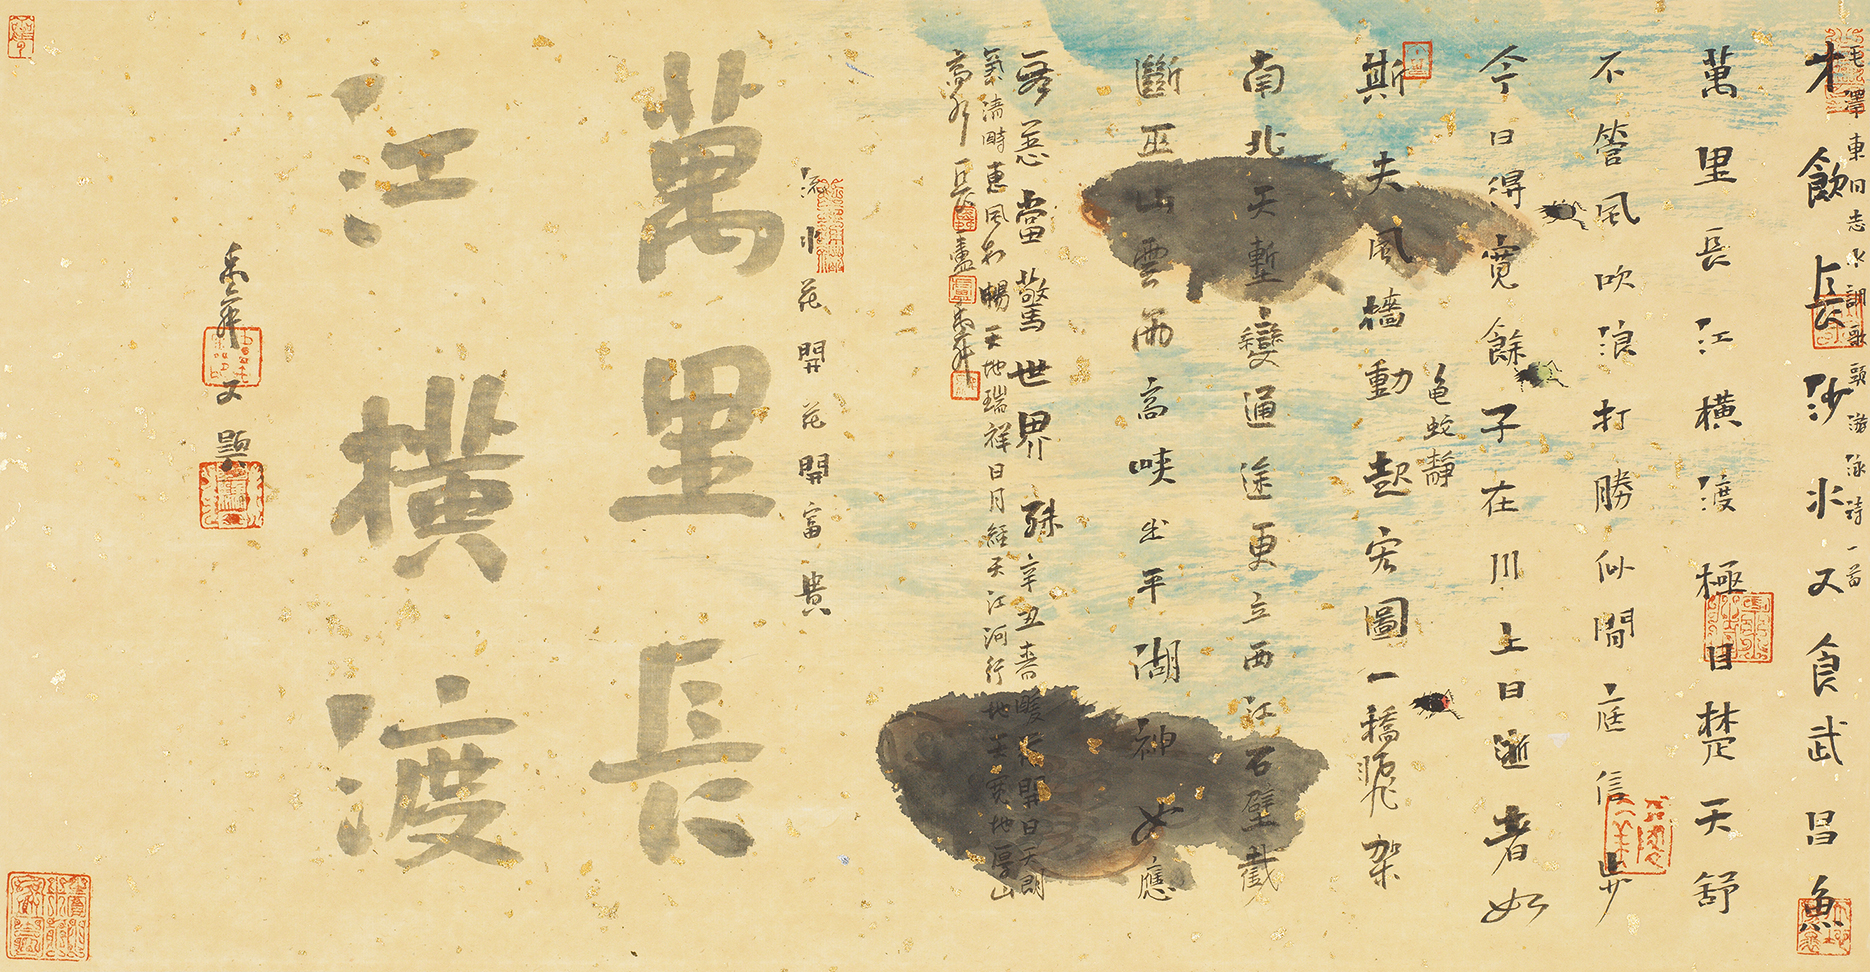 毛澤東同志水調歌頭游泳詩一首
才飲長沙水又食武昌魚
萬里長江橫渡極目楚天舒
不管風吹浪打勝似間庭信步
今日得寬餘子在川上曰逝者如
龜蛇靜
斯夫風檣動起宏圖一橋飛架
南北天塹變通途更立西江石壁截
斷巫山雲雨高峽出平湖神女應
無恙當驚世界殊辛丑春暖花開日天朗
氣清時惠風和暢天地瑞祥日月經天江河行地天寬地厚山
高水長盧禹舜
流水花開花開富貴
萬里長
江橫渡
禹舜又題